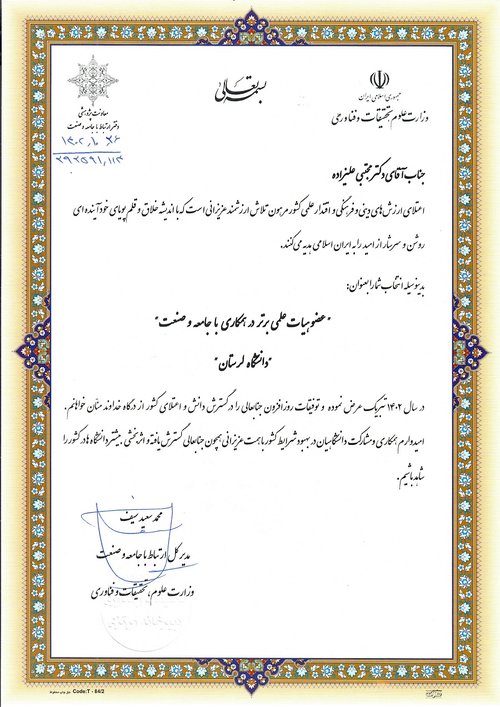 بسمه تعالی
جمهوری اسلامی ایران
وزارت علوم، تحقیقات و فناوری
معاونت پژوهشی
دفتر ارتباط با جامعه و صنعت
جناب آقای دکتر مجتبی علیزاده
اعتلای ارزش های دینی و فرهنگی و اقتدار علمی کشور مرهون تلاش ارزشمند عزیزانی است که با اندیشه خلاق و قلم پویای خود آینده ای
روشن و سرشار از امید را به ایران اسلامی هدیه می‌کنند.
بدینوسیله انتخاب شما را بعنوان:
"عضو هیات علمی برتر در همکاری با جامعه و صنعت"
"دانشگاه لرستان"
در سال ۱۴۰۲ تبریک عرض نموده و توفیقات روزافزون جنابعالی را در گسترش دانش و اعتلای کشور از درگاه خداوند منّان خواهانم.
امیدوارم همکاری و مشارکت دانشگاهیان در بهبود شرایط کشور با همت عزیزانی همچون جنابعالی گسترش یافته و اثربخشی بیشتر دانشگاه ها در کشور را
شاهد باشیم.
محمد سعید سیف
مدیر کل ارتباط با جامعه و صنعت
وزارت علوم، تحقیقات و فناوری
Code:T - 84/2